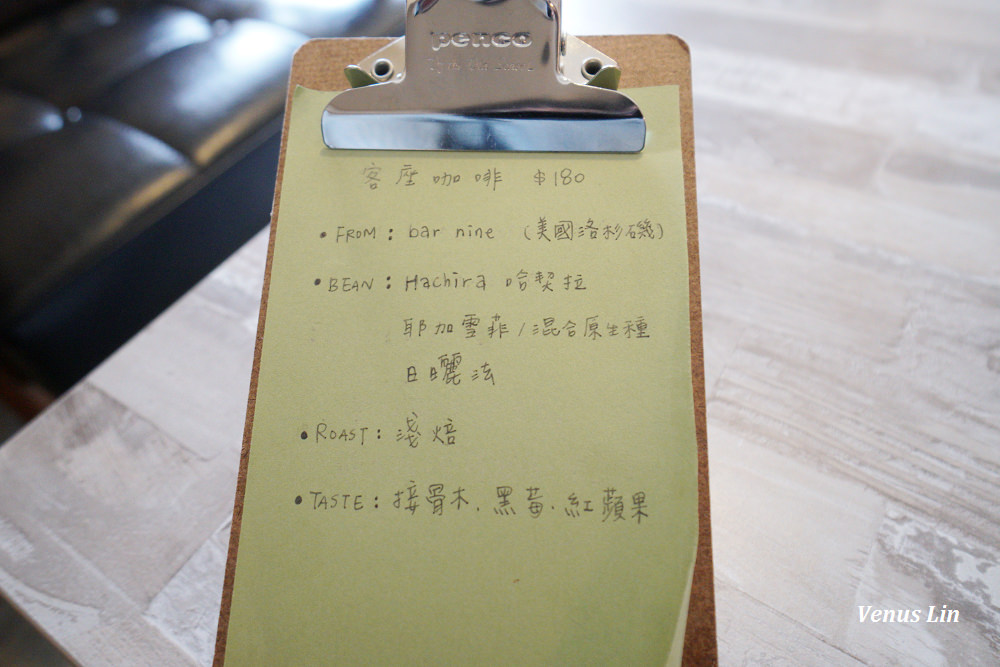 penco
客座咖啡 $180
• FROM : bar nine (美國洛杉磯)
• BEAN : Hachira 哈契拉
耶加雪菲/混合原生種
日曬法
• ROAST : 淺焙
• TASTE : 接骨木、黑莓、紅蘋果
Venus Lin